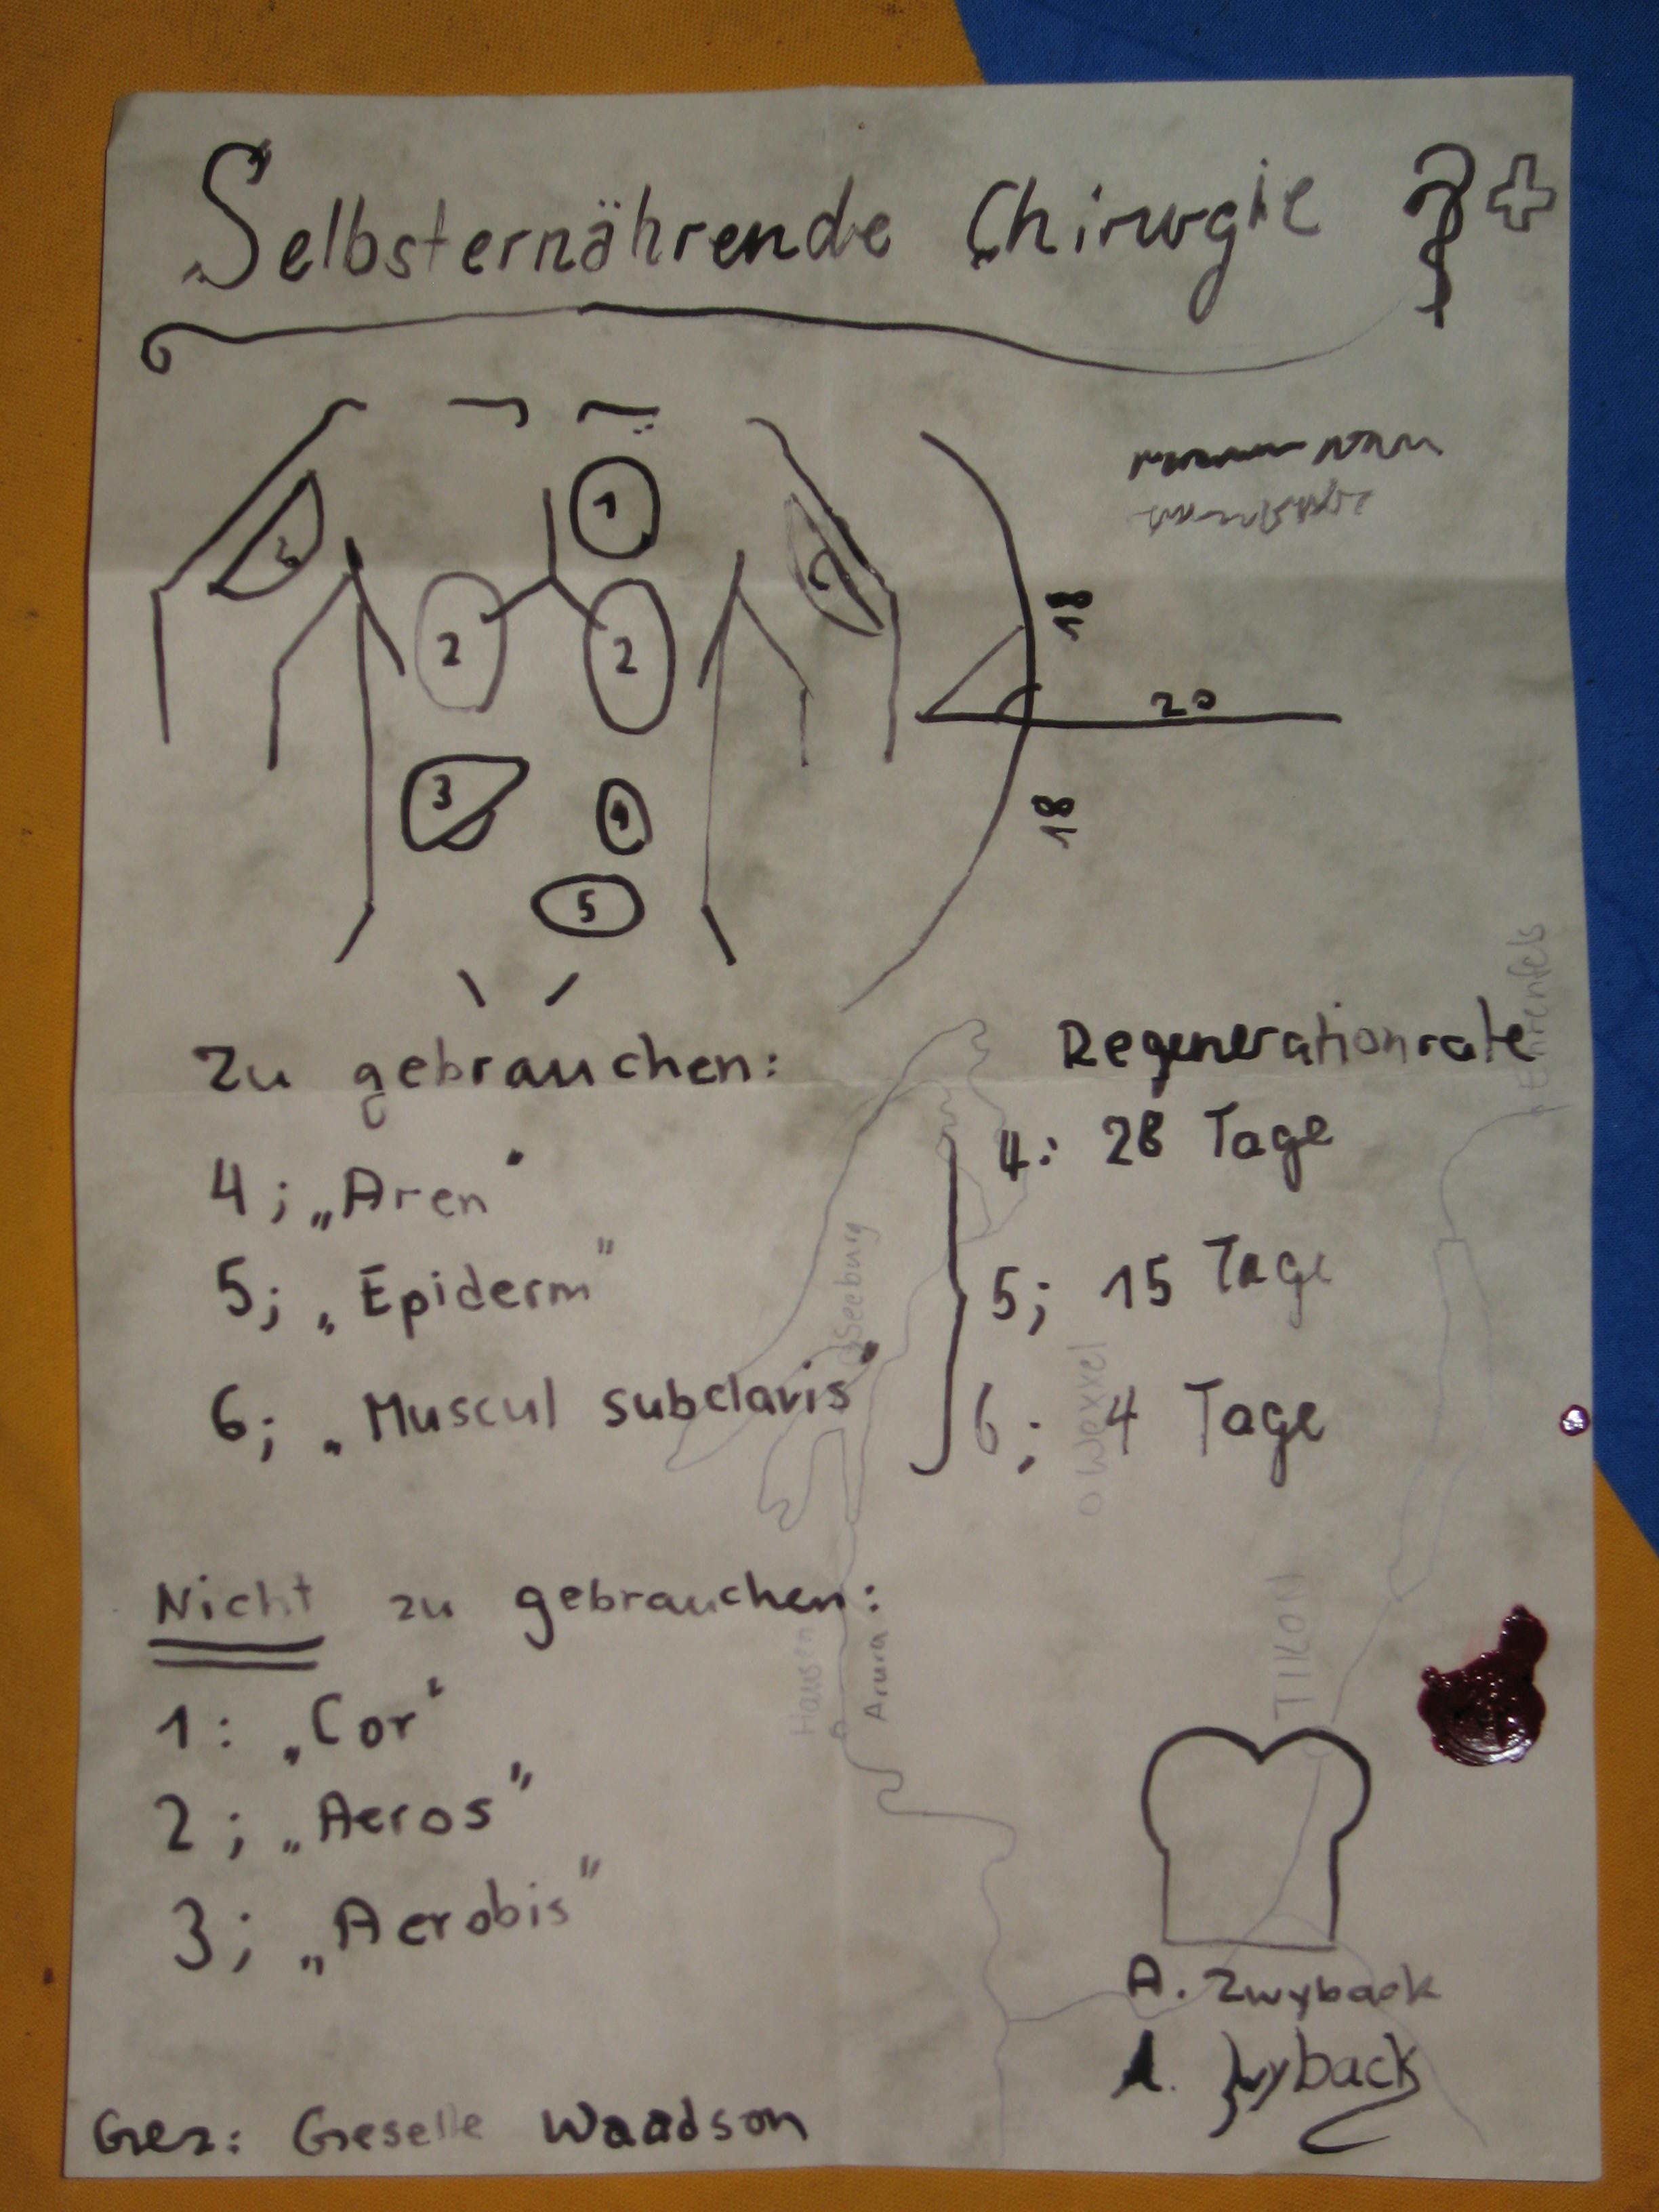 Selbsternährende Chirurgie
1
2
2
3
4
5
18
20
18
Zu gebrauchen:
4; „Aren"
5; „Epiderm"
6; „Muscul subclavis"
Regenerationrate
4: 28 Tage
5; 15 Tage
6; 4 Tage
Ehrenfels
Seeburg
Wexxel
Hausen
Arura
TIKON
Nicht zu gebrauchen:
1: „Cor"
2; „Aeros"
3; „Aerobis"
A. Zwyback
A. Zwyback
Gez: Geselle Waadson